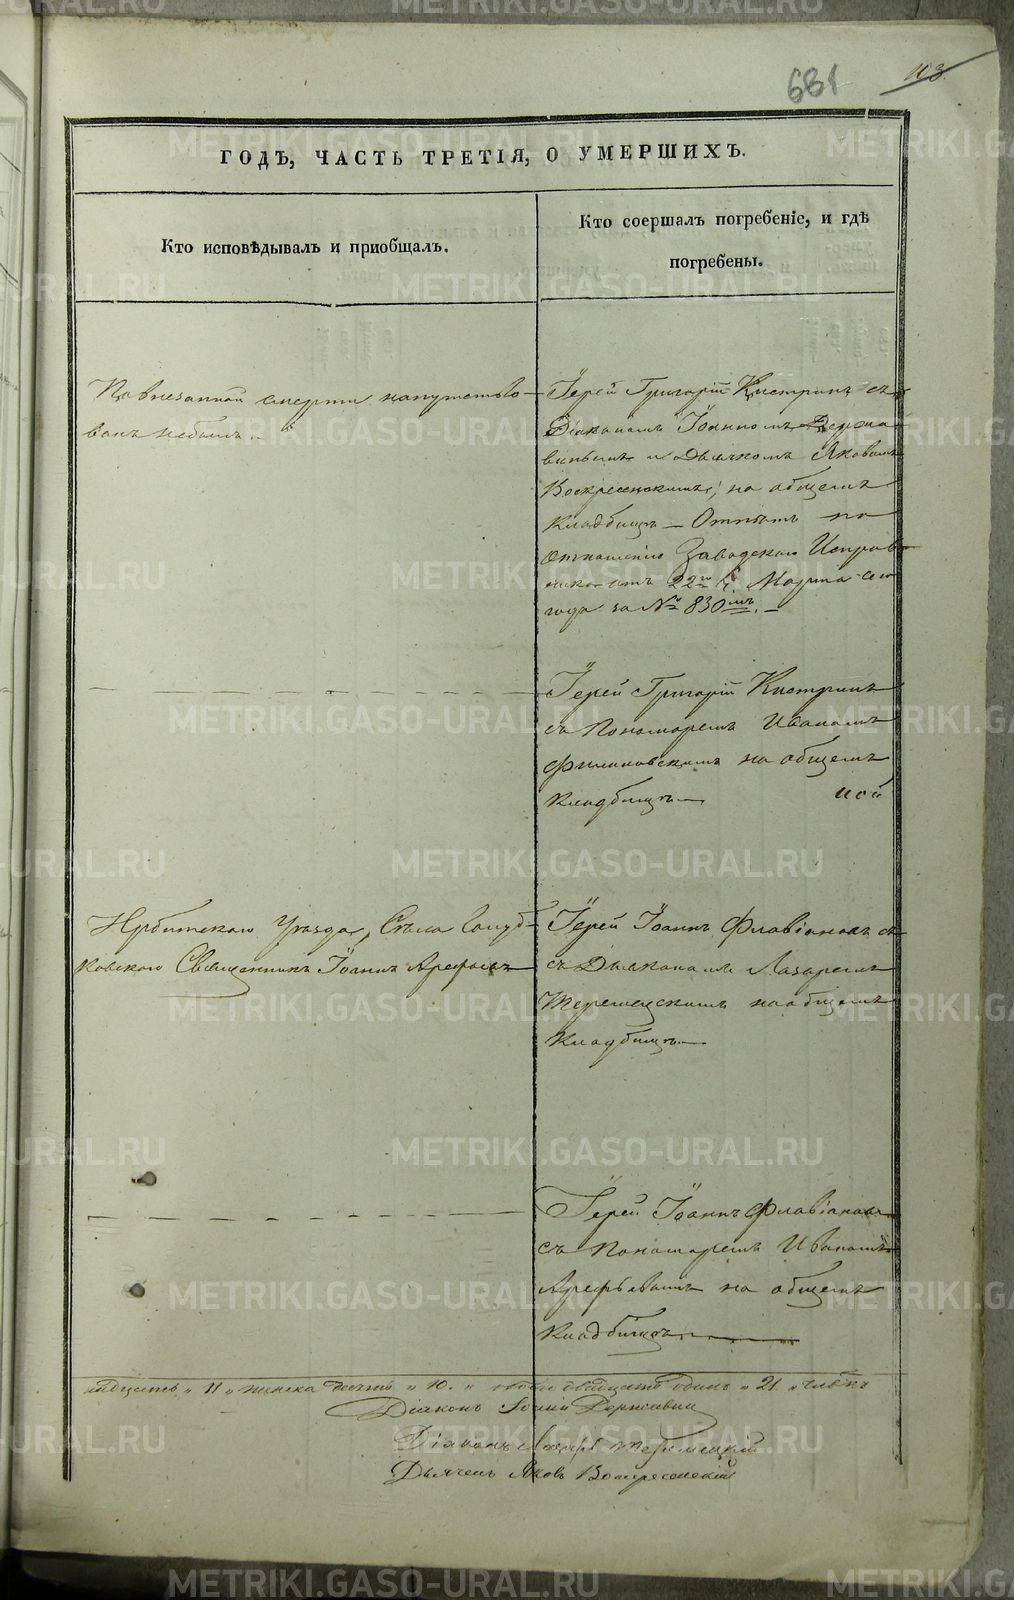 681
113
ГОДЪ, ЧАСТЬ ТРЕТІЯ, О УМЕРШИХЪ.
Кто исповѣдывалъ и приобщалъ.
Кто соершалъ погребеніе, и гдѣ
погребены.
По внезапной смерти напутство-
ванъ небылъ.
Іерей Григорій Кистринъ съ
Діакономъ Іоанномъ Держа
винымъ и Дьячкомъ Яковомъ
Воскресенскимъ, на общемъ
Кладбищѣ – Отпѣтъ по
отношенію Заводскаго Исправ
ника отъ 22го Марта сего
года за № 830мъ. –
Іерей Григорій Кистринъ
съ Пономаремъ Иваномъ
Филиповскимъ на общемъ
Кладбищѣ –
Ирбитскаго Уѣзда, Села
ковскаго Священникъ Іоаннъ Арефьевъ
Іерей Іоаннъ Флавіановъ съ
съ Дьякономъ Лазаремъ
Теремецскимъ на общемъ
Кладбищѣ –
Іерей Іоаннъ Флавіановъ
съ Пономаремъ Иваномъ
Арефьевымъ на общемъ
Кладбищѣ
надцать „ 11 „ женска десять „ 10. „ обоего двадцать одинъ „ 21 „ человѣкъ
Діаконъ Державин
Діаконъ Лазарь Теремецкій
Дьячекъ Яковъ Воскресенскій
METRIKI.GASO-URAL.RU